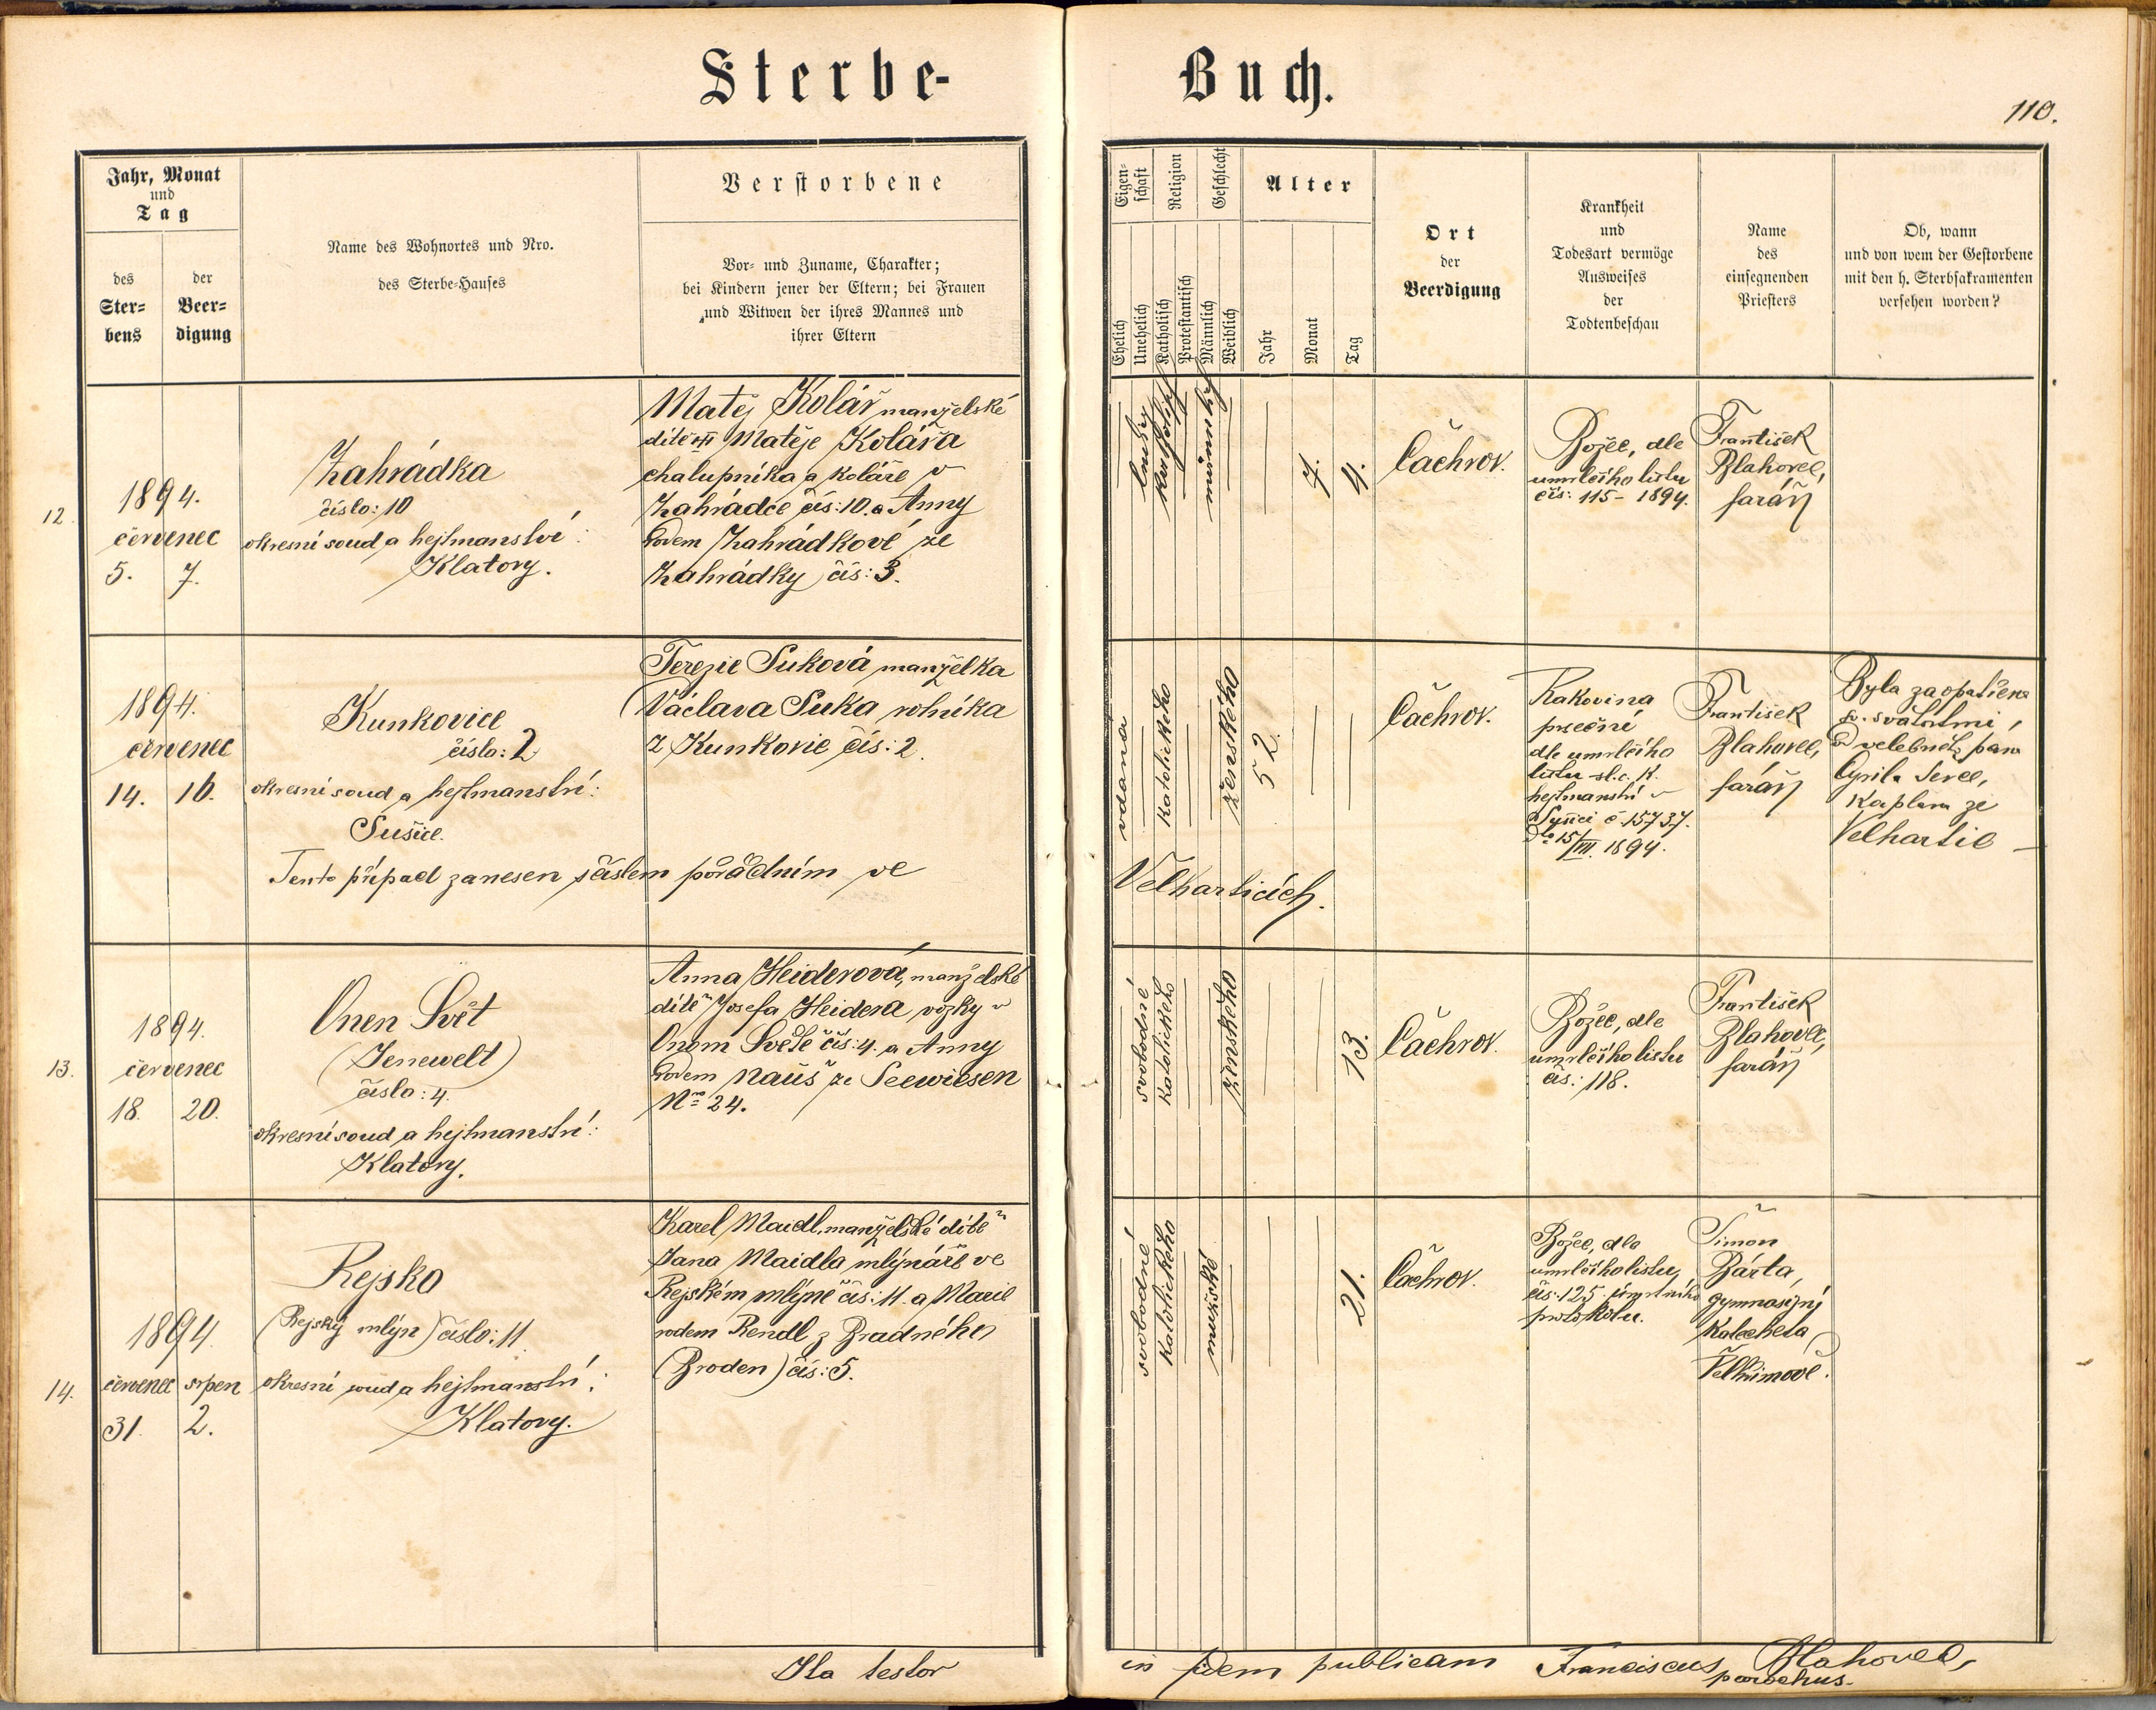 Sterbe-
Buch.
110.
Jahr, Monat
und
Tag
des
Ster-
bens
der
Beer-
digung
Name des Wohnortes und Nro.
des Sterbe-Hauses
Verstorbene
Vor- und Zuname, Charakter;
bei Kindern jener der Eltern; bei Frauen
und Witwen der ihres Mannes und
ihrer Eltern
Eigen-
schaft
Religion
Geschlecht
Alter
Ehelich
Unehelich
Katholisch
Protestantisch
Männlich
Weiblich
Jahr
Monat
Tag
Ort
der
Beerdigung
Krankheit
und
Todesart vermöge
Ausweises
der
Todtenbeschau
Name
des
einsegnenden
Priesters
Ob, wann
und von wem der Gestorbene
mit den h. Sterbsakramenten
versehen worden?
12.
1894.
červenec
5. 7.
Zahrádka
číslo: 10
okresní soud a hejtmanství:
Klatovy.
Matěj Kolář manželské
dítě Matěje Koláře
chalupníka a koláře v
Zahrádce čís: 10. a Anny
rodem Zahrádkové ze
Zahrádky čís: 3.
7.
4.
Čachrov.
Božec, dle
umrlčího listu
čís: 115 - 1894.
František
Blahovec,
farář
1894.
červenec
14. 16.
Kunkovice
číslo: 2
okresní soud a hejtmanství:
Sušice.
Terezie Suková manželka
Václava Suka rolníka
z Kunkovic čís: 2.
vdaná
katolického
ženského
52
Čachrov.
Rakovina
dle umrlčího
listu sl. c. k.
hejtmanství v
Sušici č. 15737.
dto 15/VII. 1894.
František
Blahovec,
farář
Byla zaopatřena
sv. svátostmi,
Od velebného pána
Cyrila
kaplana ze
Velhartic
Tento případ zanesen číslem pořádním ve
Velharticích.
13.
1894.
červenec
18. 20.
Onen Svět
(Jenewelt)
číslo: 4.
okresní soud a hejtmanství:
Klatovy.
Anna Heiderová, manželské
dítě Josefa Heidera vozky v
Onom Světě čís: 4. a Anny
rodem Nauš ze Seewiesen
Nro 24.
svobodné
katolického
ženského
13.
Čachrov.
Božec, dle
umrlčího listu
čís: 118.
František
Blahovec,
farář
14.
1894.
červenec srpen
31. 2.
Rejsko
(Rejský mlýn) číslo: 11
okresní soud a hejtmanství:
Klatovy.
Karel Maidl, manželské dítě
Jana Maidla mlynáře ve
Rejském mlýně čís: 11. a Marie
rodem Rendl z Bradného
(Broden) čís: 5.
svobodné
katolického
mužské
21.
Čachrov.
Božec, dle
umrlčího listu,
čís: 125. úmrtního
protokolu.
Šimon
Bárta,
gymnasijní
katecheta
Ita testor
in fidem publicam Franciscus Blahovec,
parochus.